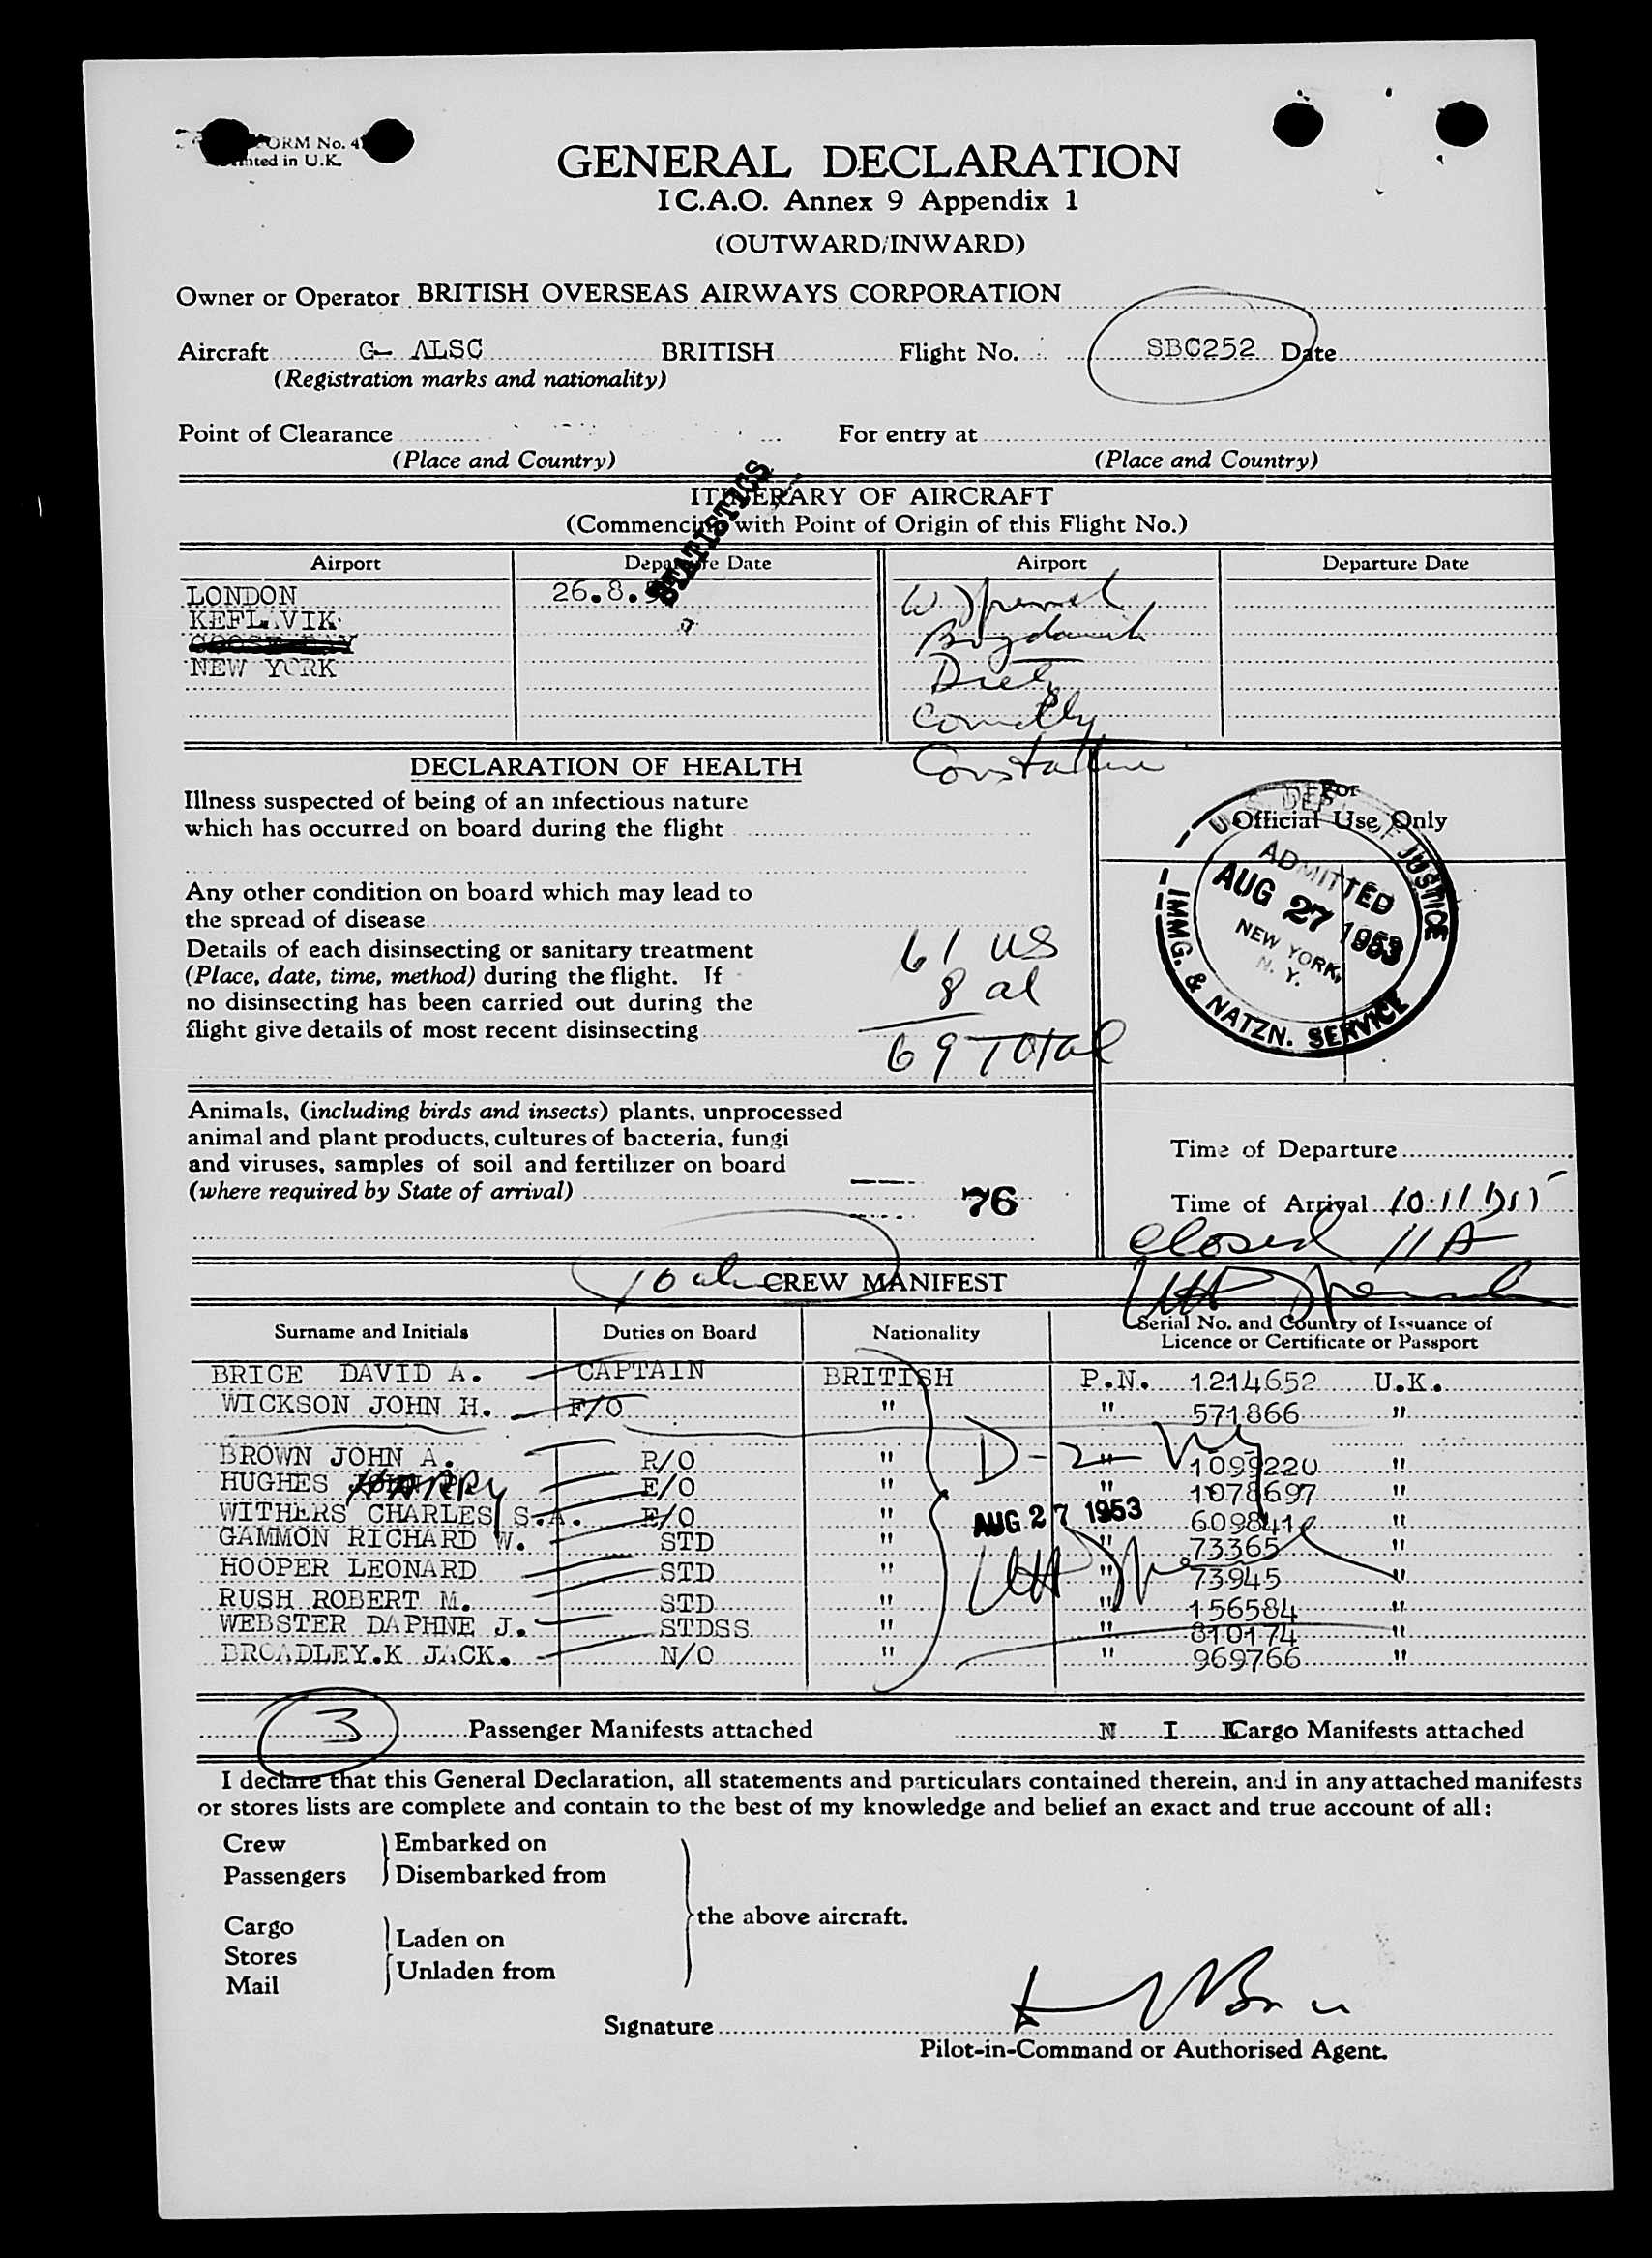 FORM No. 4
Printed in U.K.
GENERAL DECLARATION
I C.A.O. Annex 9 Appendix 1
(OUTWARD/INWARD)
Owner or Operator BRITISH OVERSEAS AIRWAYS CORPORATION
Aircraft G- ALSC BRITISH Flight No. SBC252 Date
(Registration marks and nationality)
Point of Clearance For entry at
(Place and Country) (Place and Country)
STATISTICS
ITINERARY OF AIRCRAFT
(Commencing with Point of Origin of this Flight No.)
Airport Departure Date Airport Departure Date
LONDON 26.8.
KEFLAVIK
GOOSE BAY
NEW YORK
Connelly
DECLARATION OF HEALTH
Illness suspected of being of an infectious nature
which has occurred on board during the flight
For
Official Use Only
U.S. DEPT. OF JUSTICE
ADMITTED
AUG 27 1953
NEW YORK,
N. Y.
IMMG. & NATZN. SERVICE
Any other condition on board which may lead to
the spread of disease
Details of each disinsecting or sanitary treatment
(Place, date, time, method) during the flight. If
no disinsecting has been carried out during the
flight give details of most recent disinsecting
61 US
8 al
69 Total
Animals, (including birds and insects) plants, unprocessed
animal and plant products, cultures of bacteria, fungi
and viruses, samples of soil and fertilizer on board
(where required by State of arrival) 76
Time of Departure
Time of Arrival 10:11
Closed 11 A
10 al CREW MANIFEST
Surname and Initials Duties on Board Nationality Serial No. and Country of Issuance of
Licence or Certificate or Passport
BRICE DAVID A. CAPTAIN BRITISH P.N. 1214652 U.K.
WICKSON JOHN H. F/O " " 571866 "
BROWN JOHN A. R/O " " 1099220 "
HUGHES HARRY E/O " " 1078697 "
WITHERS CHARLES S.A. E/O " 609841 "
GAMMON RICHARD W. STD " " 73365 "
HOOPER LEONARD STD " " 73945 "
RUSH ROBERT M. STD " " 156584 "
WEBSTER DAPHNE J. STDSS " " 810174 "
BROADLEY.K JACK. N/O " " 969766 "
D-2
AUG 27 1953
3 Passenger Manifests attached N I L Cargo Manifests attached
I declare that this General Declaration, all statements and particulars contained therein, and in any attached manifests
or stores lists are complete and contain to the best of my knowledge and belief an exact and true account of all:
Crew Embarked on
Passengers Disembarked from
the above aircraft.
Cargo
Laden on
Stores
Unladen from
Mail
Signature
Pilot-in-Command or Authorised Agent.